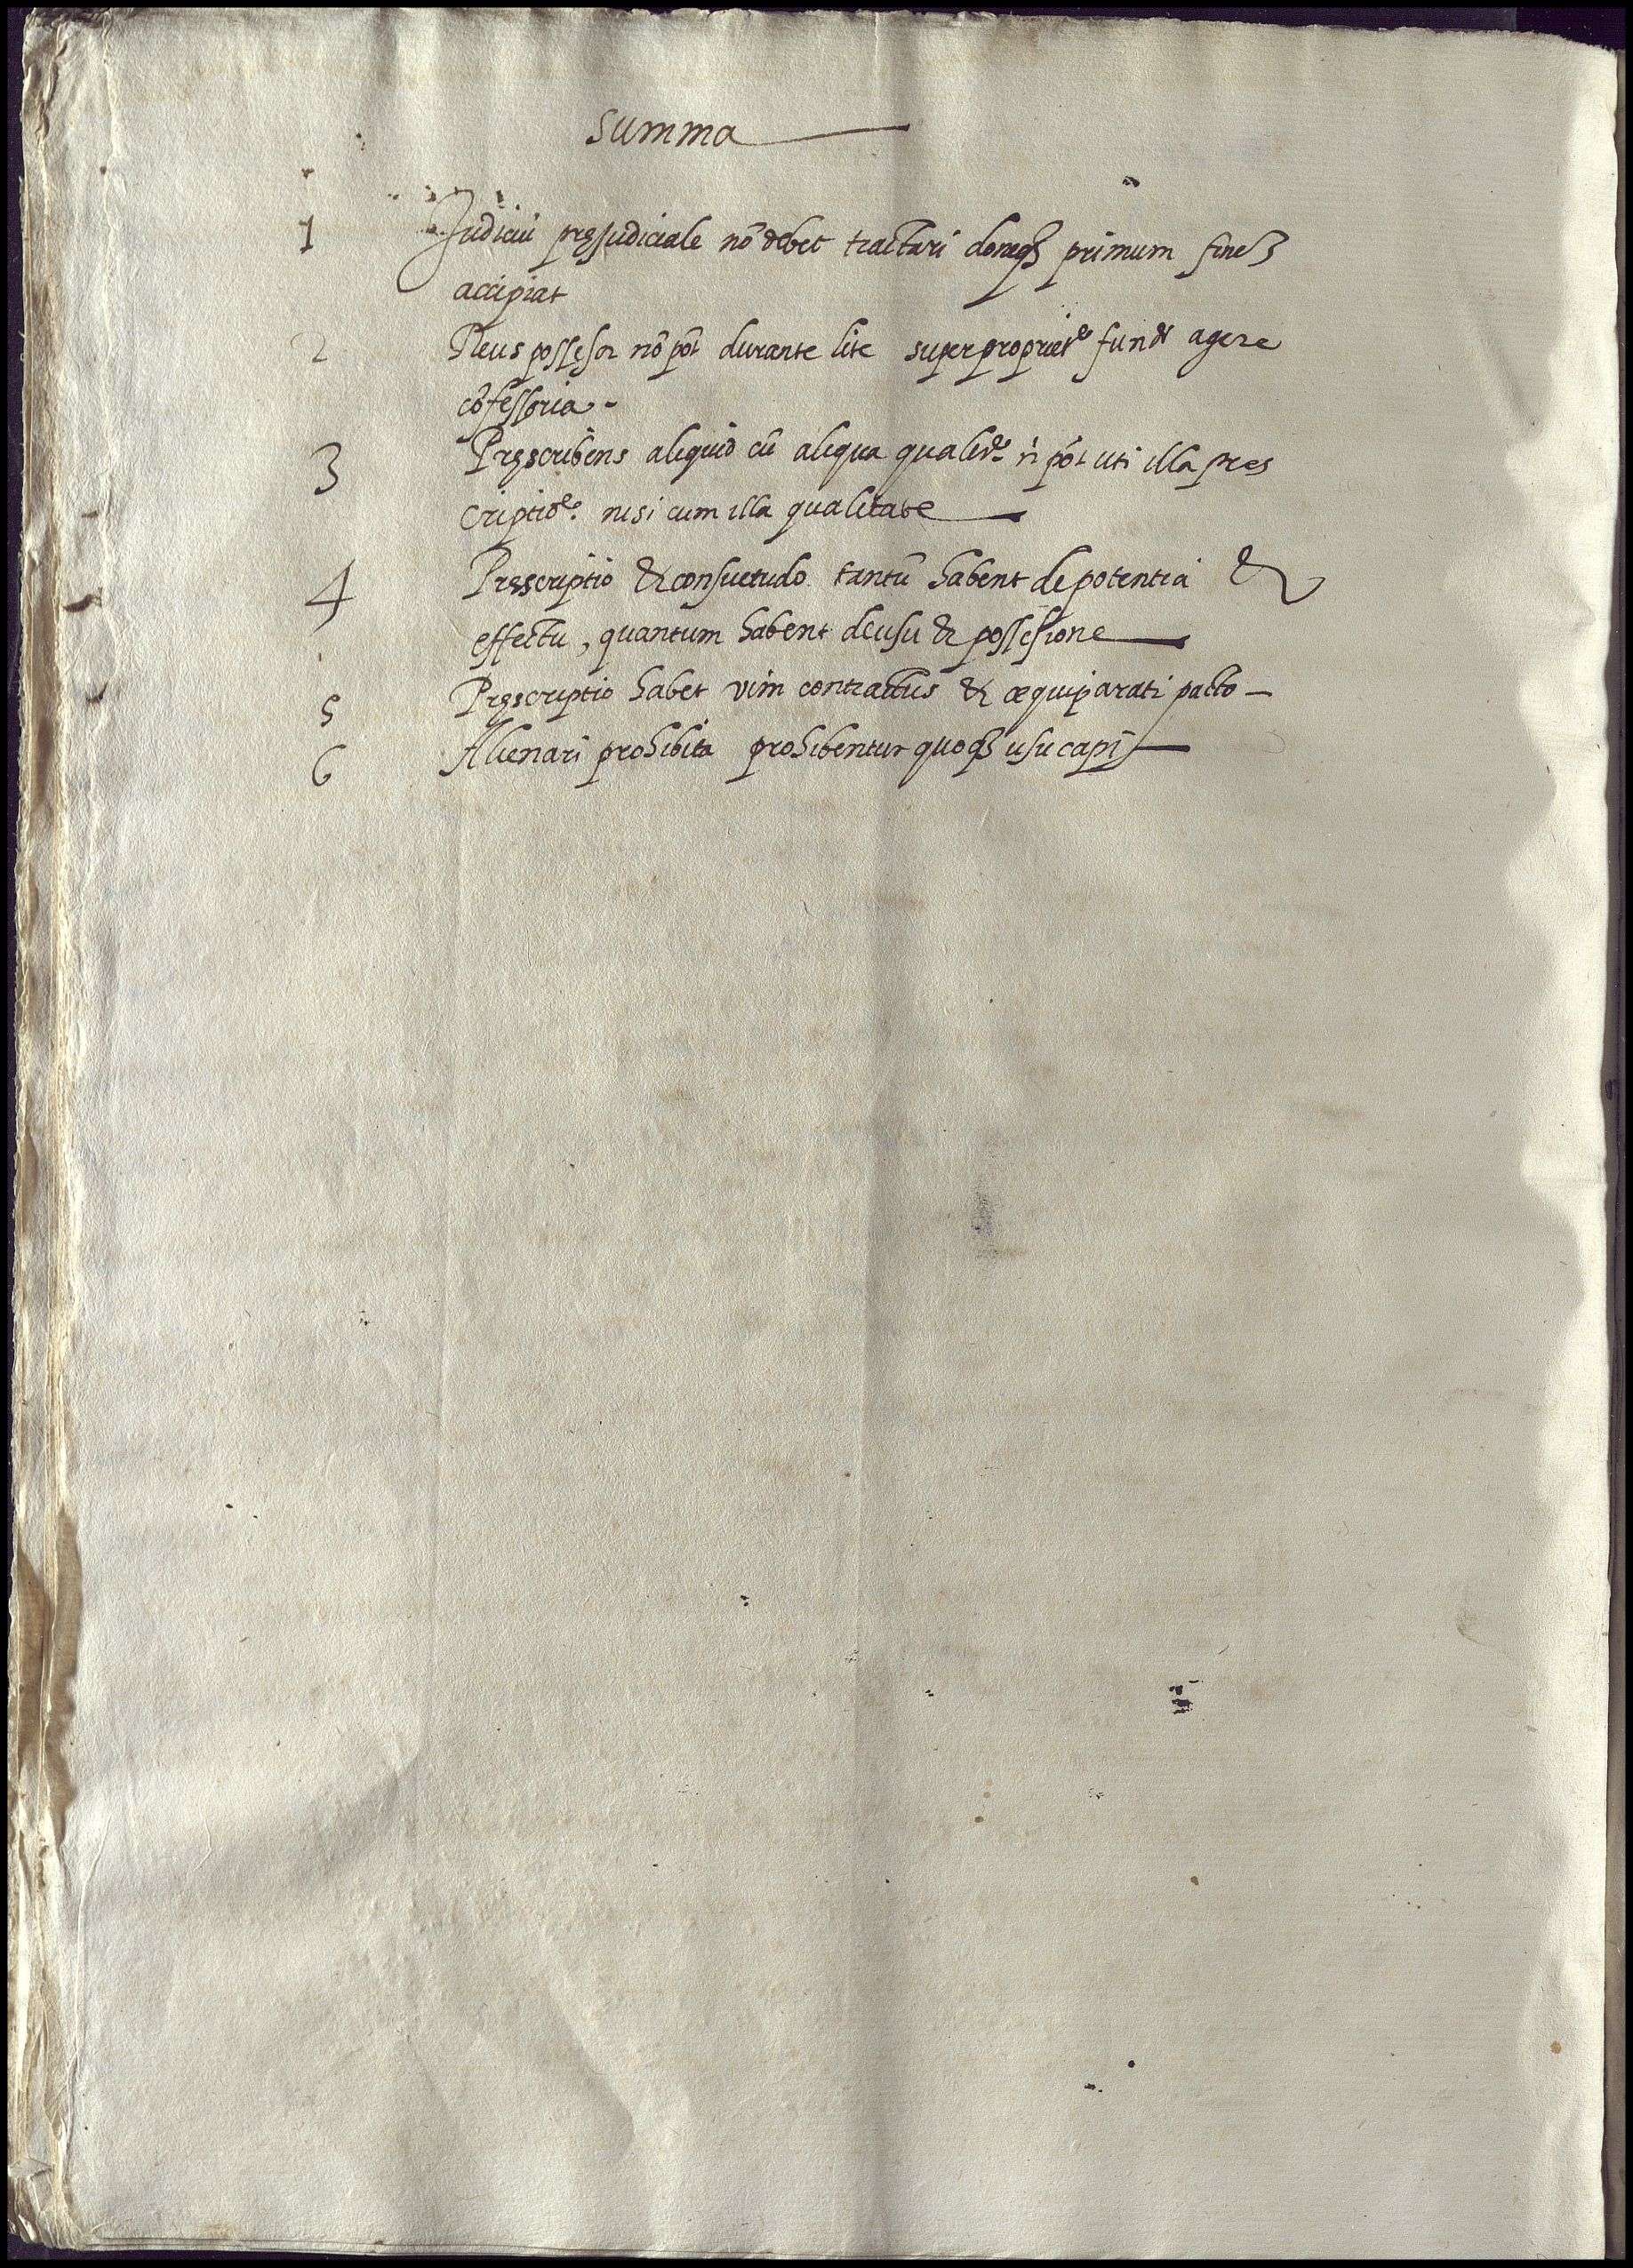 summa
1 Judiciũ pręjudiciale nõ debet tractari doneqз primum fineз
accipiat
2 possesor nõ põt durante lite super propriete fundi agere
cõfessoria.
3 Pręscribens aliquid cũ aliqua qualide ñ põt uti illa pres
criptiõe. nisi cum illa qualitate
4 Pręscriptio & consuetudo tantũ habent de potentia &
effectu, quantum habent de usu & possesione
5 Pręscriptio habet vim contractus & æquiparati pacto
6 Alienari prohibita prohibentur quoqз usu capi